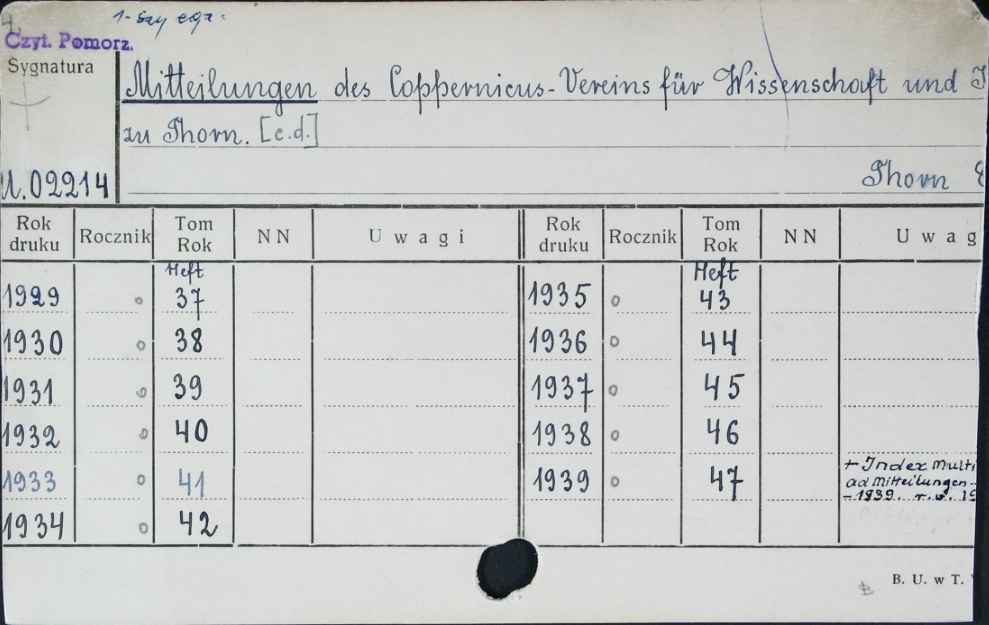 1-szy egz.
Czyt. Pomorz.
Sygnatura
Mitteilungen des Coppernicus-Vereins für Wissenschaft und
zu Thorn. [c.d.]
U.02214
Thorn
Rok druku Rocznik Tom Rok NN Uwagi Rok druku Rocznik Tom Rok NN Uwag
Heft Heft
1929 o 37 1935 o 43
1930 o 38 1936 o 44
1931 o 39 1937 o 45
1932 o 40 1938 o 46
1933 o 41 1939 o 47 + Index multi
ad Mitteilungen-
-1939. r.
1934 o 42
B. U. w T.